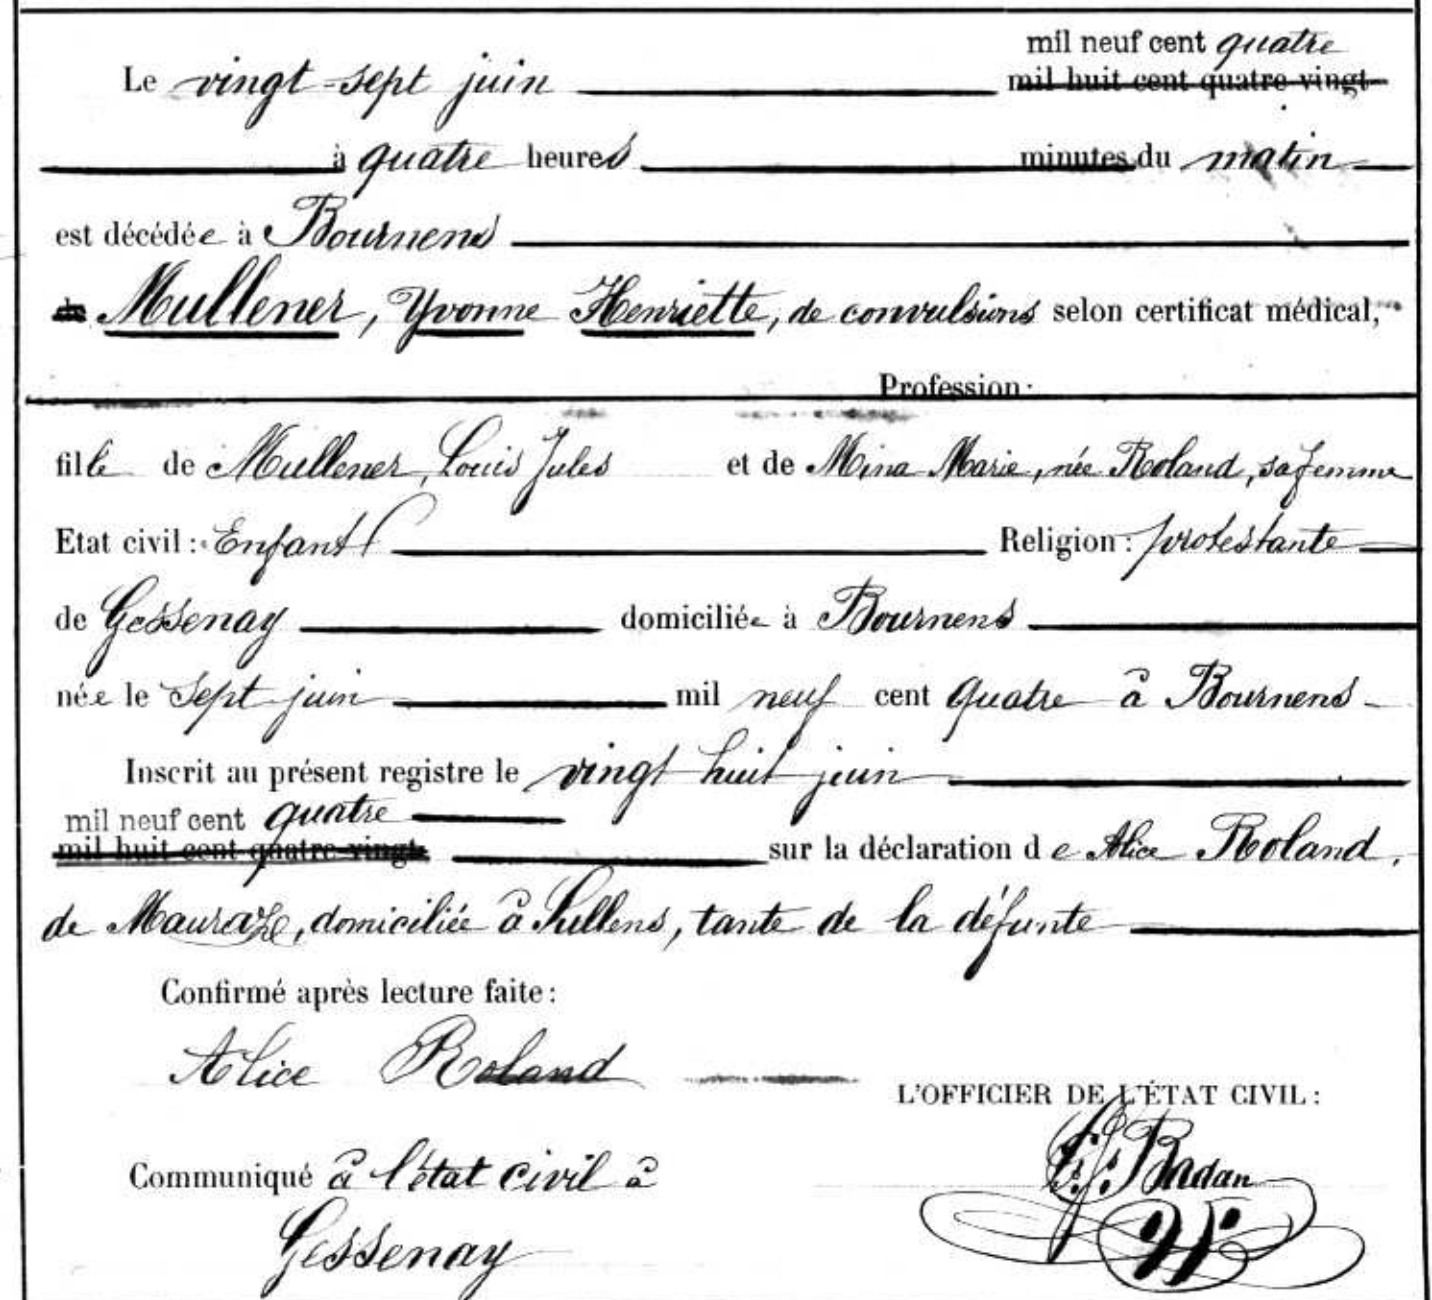 mil neuf cent quatre
Le vingt-sept juin mil huit cent quatre-vingt
à quatre heures minutes du matin
est décédée à Bournens
de Mullener, Yvonne Henriette, de convulsions selon certificat médical,
Profession:
fille de Mullener, Louis Jules et de Mina Marie, née Roland, sa femme
Etat civil: Enfant Religion: protestante
de Gessenay domiciliée à Bournens
née le sept juin mil neuf cent quatre à Bournens
Inscrit au présent registre le vingt huit juin
mil neuf cent quatre
mil huit cent quatre-vingt sur la déclaration de Alice Roland,
de Mauraz, domiciliée à Sullens, tante de la défunte
Confirmé après lecture faite:
Alice Roland
L'OFFICIER DE L'ÉTAT CIVIL:
Communiqué à l'état civil à
Badan
Gessenay